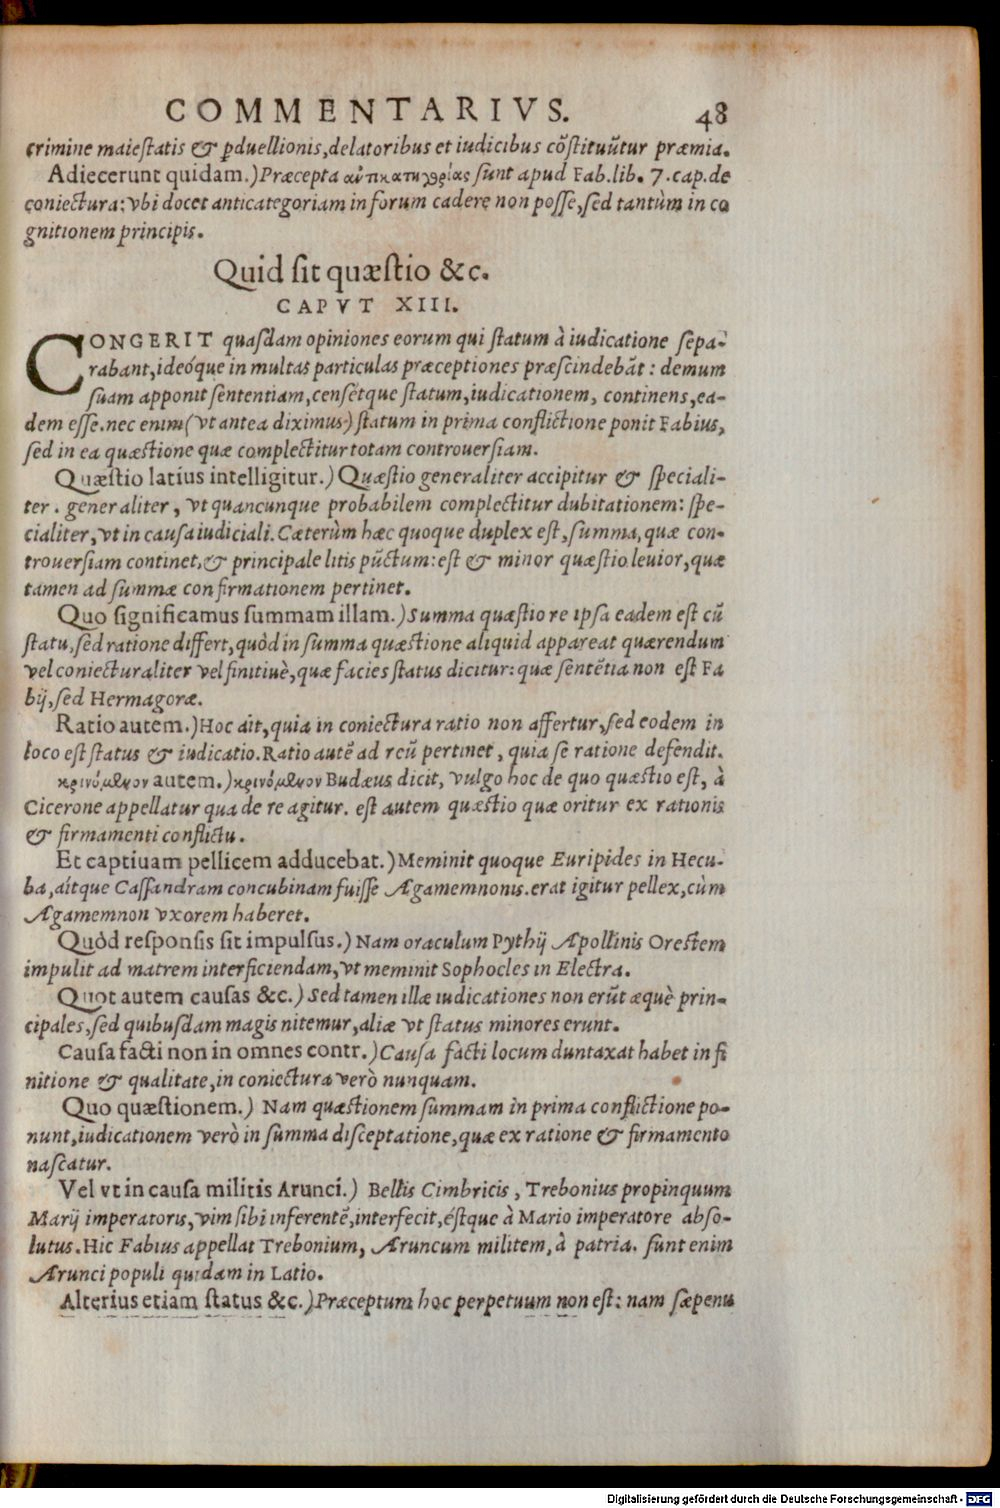 COMMENTARIVS. 48
crimine maiestatis & p̱duellionis, delatoribus et iudicibus cõstituũtur præmia.
Adiecerunt quidam.) Præcepta ἀντικατηγορίας sunt apud Fab. lib. 7. cap. de
coniectura: vbi docet anticategoriam in forum cadere non posse, sed tantùm in co
gnitionem principis.
Quid sit quæstio &c.
CAPVT XIII.
CONGERIT quasdam opiniones eorum qui statum à iudicatione sepa-
rabant, ideóque in multas particulas præceptiones præscindebãt: demum
suam apponit sententiam, censétque statum, iudicationem, continens, ea-
dem esse. nec enim (vt antea diximus) statum in prima conflictione ponit Fabius,
sed in ea quæstione quæ complectitur totam controuersiam.
Quæstio latius intelligitur.) Quæstio generaliter accipitur & speciali-
ter. generaliter, vt quancunque probabilem complectitur dubitationem: spe-
cialiter, vt in causa iudiciali. Cæterùm hæc quoque duplex est, summa, quæ con-
trouersiam continet, & principale litis pũctum: est & minor quæstio leuior, quæ
tamen ad summæ confirmationem pertinet.
Quo significamus summam illam.) Summa quæstio re ipsa eadem est cũ
statu, sed ratione differt, quòd in summa quæstione aliquid appareat quærendum
vel coniecturaliter vel finitiuè, quæ facies status dicitur: quæ sentẽtia non est Fa
bij, sed Hermagoræ.
Ratio autem.) Hoc ait, quia in coniectura ratio non affertur, sed eodem in
loco est status & iudicatio. Ratio autẽ ad reũ pertinet, quia se ratione defendit.
κρινόμενον autem.) κρινόμενον Budæus dicit, vulgo hoc de quo quæstio est, à
Cicerone appellatur qua de re agitur. est autem quæstio quæ oritur ex rationis
& firmamenti conflictu.
Et captiuam pellicem adducebat.) Meminit quoque Euripides in Hecu-
ba, aítque Cassandram concubinam fuisse Agamemnonis. erat igitur pellex, cùm
Agamemnon vxorem haberet.
Quòd responsis sit impulsus.) Nam oraculum Pythij Apollinis Orestem
impulit ad matrem interficiendam, vt meminit Sophocles in Electra.
Quot autem causas &c.) Sed tamen illæ iudicationes non erũt æquè prin-
cipales, sed quibusdam magis nitemur, aliæ vt status minores erunt.
Causa facti non in omnes contr.) Causa facti locum duntaxat habet in fi
nitione & qualitate, in coniectura verò nunquam.
Quo quæstionem.) Nam quæstionem summam in prima conflictione po-
nunt, iudicationem verò in summa disceptatione, quæ ex ratione & firmamento
nascatur.
Vel vt in causa militis Arunci.) Bellis Cimbricis, Trebonius propinquum
Marij imperatoris, vim sibi inferentẽ, interfecit, éstque à Mario imperatore abso-
lutus. Hic Fabius appellat Trebonium, Aruncum militem, à patria. sunt enim
Arunci populi quidam in Latio.
Alterius etiam status &c.) Præceptum hoc perpetuum non est: nam sæpenu
Digitalisierung gefördert durch die Deutsche Forschungsgemeinschaft - DFG